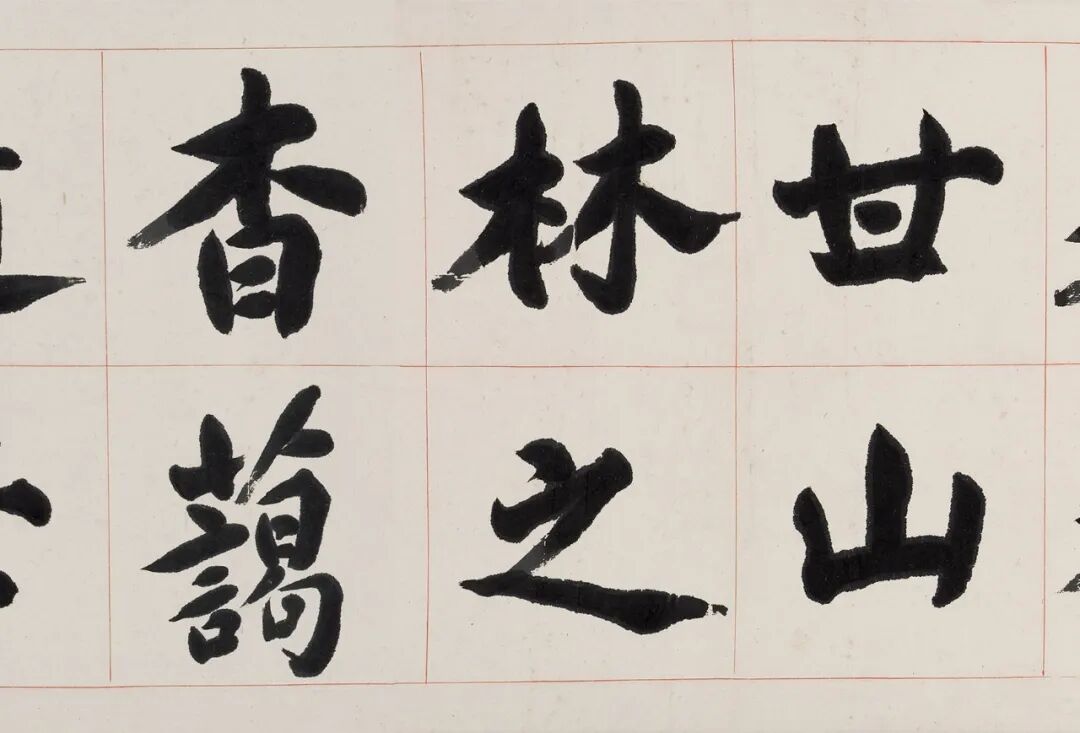 甘山
林之
香藹